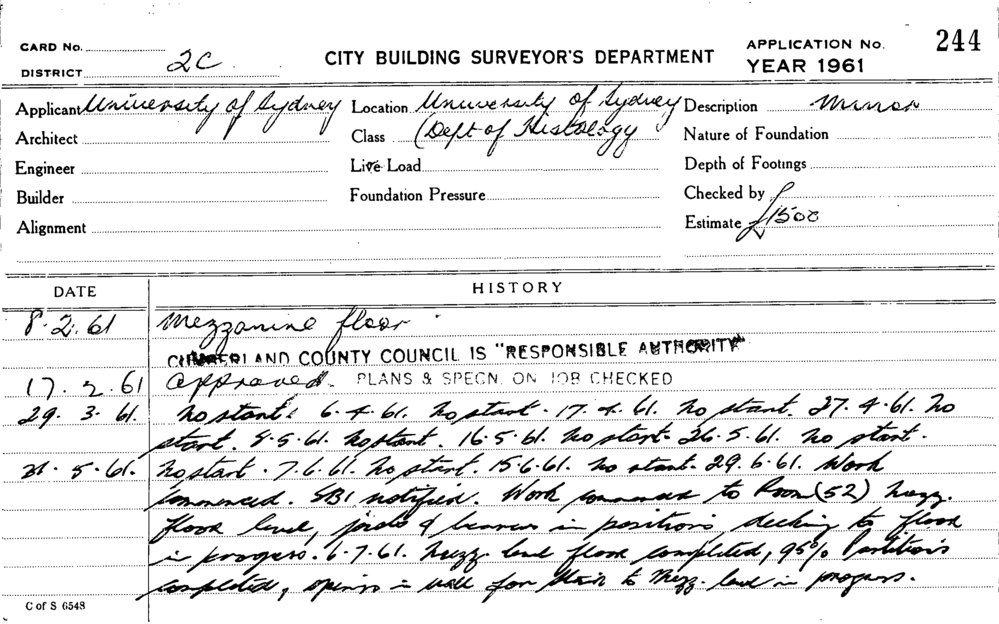 CARD No.
DISTRICT 2C
CITY BUILDING SURVEYOR'S DEPARTMENT
APPLICATION No. 244
YEAR 1961
Applicant University of Sydney Location University of Sydney Description Minor
Architect Class (Dept of Histology Nature of Foundation
Engineer Live Load Depth of Footings
Builder Foundation Pressure Checked by
Alignment Estimate £1500
DATE HISTORY
8.2.61 Mezzanine floor
CUMBERLAND COUNTY COUNCIL IS "RESPONSIBLE AUTHORITY"
17.2.61 Approved. PLANS & SPECN. ON JOB CHECKED
29.3.61. No start. 6.4.61. No start. 17.4.61. No start. 27.4.61. No
start. 8.5.61. No start. 16.5.61. No start. 26.5.61. No start.
31.5.61. No start. 7.6.61. No start. 15.6.61. No start. 29.6.61. Work
commenced. SBI notified. Work commenced to Room (52) Mezz.
floor level, joists & bearers in positions decking to floor
in progress. 6.7.61. Mezz level floor completed, 95% Partitions
completed, opening in wall for stair to Mezz. level in progress.
C of S 6548